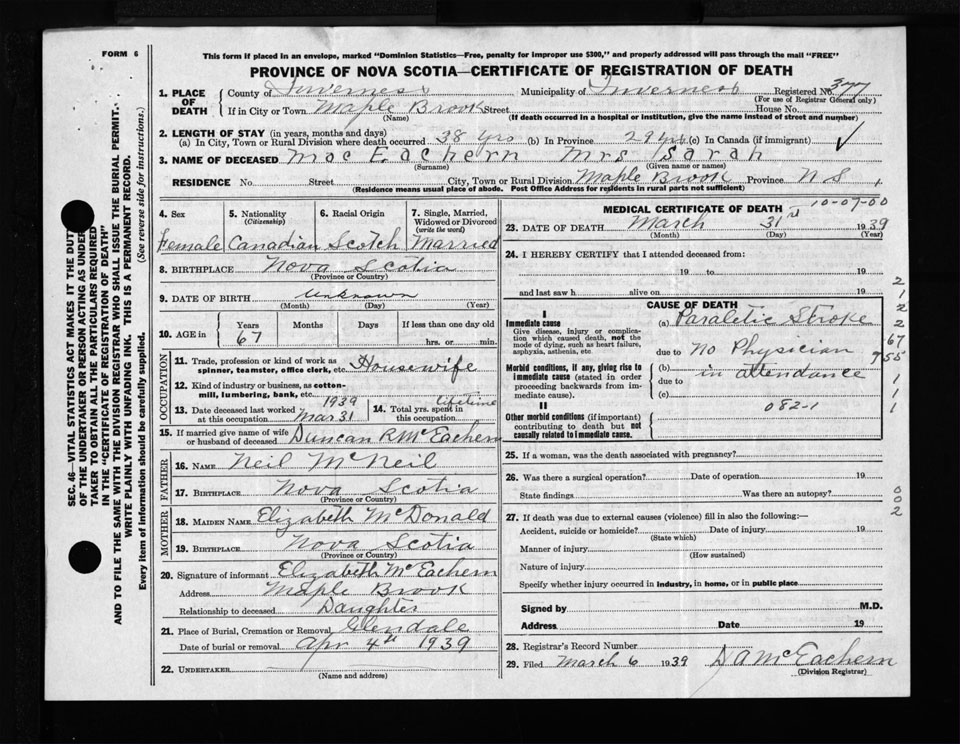 FORM 6
This form if placed in an envelope, marked "Dominion Statistics—Free, penalty for improper use $300," and properly addressed will pass through the mail "FREE"
PROVINCE OF NOVA SCOTIA—CERTIFICATE OF REGISTRATION OF DEATH
SEC. 46—VITAL STATISTICS ACT MAKES IT THE DUTY
OF THE UNDERTAKER OR PERSON ACTING AS UNDER
TAKER TO OBTAIN ALL THE PARTICULARS REQUIRED
IN THE "CERTIFICATE OF REGISTRATION OF DEATH"
AND TO FILE THE SAME WITH THE DIVISION REGISTRAR WHO SHALL ISSUE THE BURIAL PERMIT.
WRITE PLAINLY WITH UNFADING INK. THIS IS A PERMANENT RECORD.
Every item of information should be carefully supplied. (See reverse side for instructions.)
1. PLACE OF DEATH County of Inverness Municipality of Inverness Registered No. 377
(For use of Registrar General only)
If in City or Town Maple Brook Street House No.
(Name) (If death occurred in a hospital or institution, give the name instead of street and number)
2. LENGTH OF STAY (in years, months and days)
(a) In City, Town or Rural Division where death occurred 38 yrs (b) In Province 29 yrs (c) In Canada (if immigrant)
3. NAME OF DECEASED Mac Eachern Mrs Sarah
(Surname) (Given name or names)
RESIDENCE No. Street City, Town or Rural Division Maple Brook Province N S
(Residence means usual place of abode. Post Office Address for residents in rural parts not sufficient)
4. Sex 5. Nationality (Citizenship) 6. Racial Origin 7. Single, Married, Widowed or Divorced (write the word)
Female Canadian Scotch Married
8. BIRTHPLACE Nova Scotia
(Province or Country)
9. DATE OF BIRTH unknown
(Month) (Day) (Year)
10. AGE in Years Months Days If less than one day
67 hrs. or min.
OCCUPATION
11. Trade, profession or kind of work as spinner, teamster, office clerk, etc. Housewife
12. Kind of industry or business, as cotton-mill, lumbering, bank, etc.
13. Date deceased last worked at this occupation 1939 Mar 31 14. Total yrs. spent in this occupation lifetime
15. If married give name of wife or husband of deceased Duncan R McEachern
FATHER
16. NAME Neil McNeil
17. BIRTHPLACE Nova Scotia
(Province or Country)
MOTHER
18. MAIDEN NAME Elizabeth McDonald
19. BIRTHPLACE Nova Scotia
(Province or Country)
20. Signature of informant Elizabeth McEachern
Address Maple Brook
Relationship to deceased Daughter
21. Place of Burial, Cremation or Removal Glendale
Date of burial or removal Apr 4th 1939
22. UNDERTAKER
(Name and address)
MEDICAL CERTIFICATE OF DEATH 10-07-00
23. DATE OF DEATH March 31 1939
(Month) (Day) (Year)
24. I HEREBY CERTIFY that I attended deceased from:
19 to 19
and last saw h alive on 19
CAUSE OF DEATH
I
Immediate cause
Give disease, injury or complication which caused death, not the mode of dying, such as heart failure, asphyxia, asthenia, etc
(a) Paraletic Stroke
due to No Physician
Morbid conditions, if any, giving rise to immediate cause (stated in order proceeding backwards from immediate cause).
(b) in attendance
due to
(c)
II
082-1
Other morbid conditions (if important) contributing to death but not causally related to immediate cause.
2
1
2
2
67
955
1
1
1
25. If a woman, was the death associated with pregnancy?
26. Was there a surgical operation? Date of operation 19
State findings Was there an autopsy?
0
0
2
27. If death was due to external causes (violence) fill in also the following:—
Accident, suicide or homicide? Date of injury 19
(State which)
Manner of injury
(How sustained)
Nature of injury
Specify whether injury occurred in industry, in home, or in public place
Signed by M.D.
Address Date 19
28. Registrar's Record Number
29. Filed March 6 1939 D A McEachern
(Division Registrar)